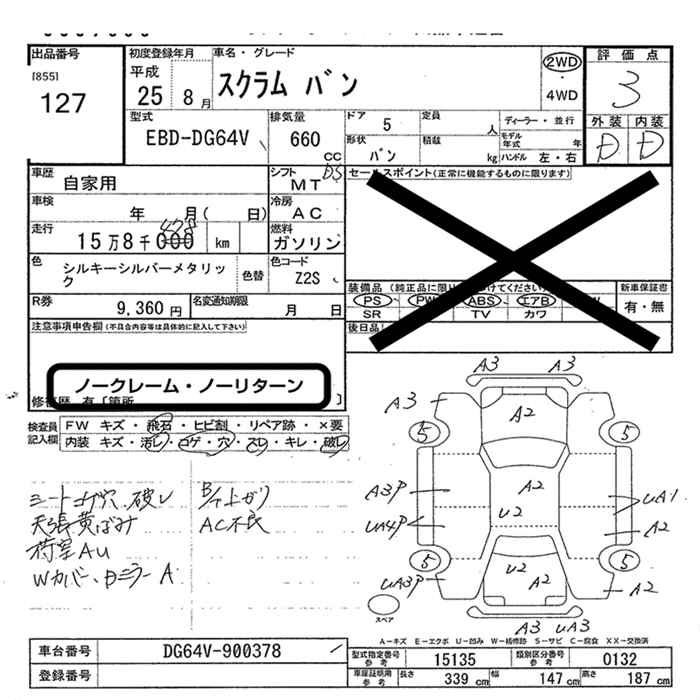 出品番号
[855]
127
初度登録年月
平成
25 8月
車名・グレード
スクラム バン
2WD
・
4WD
評価点
3
外装 内装
D D
型式
EBD-DG64V
排気量
660
CC
ドア 5
定員
人
形状
バン
積載
kg
ディーラー・並行
モデル年式 年
ハンドル 左・右
車歴
自家用
シフト D5
MT
車検
年 月( 日)
冷房
AC
走行
15万8千000 km
燃料
ガソリン
色
シルキーシルバーメタリック
色替
色コード
Z2S
R券
9,360円
名変通知期限
月 日
セールスポイント(正常に機能するものに限ります)
装備品
PS PW ABS エアB
SR TV カワ
新車保証書
有・無
後日品
注意事項申告欄(不具合内容等は具体的に記入して下さい)
ノークレーム・ノーリターン
修復歴 有〔箇所 〕
検査員記入欄
FW キズ・飛石・ヒビ割・リペア跡・×要
内装 キズ・汚レ・コゲ・穴・スレ・キレ・破レ
シートコゲ穴、破レ
天張黄ばみ
荷室AU
Wカバー、Dミラー A
B/下上がり
AC不良
A3 A3
A3 A2
5 5
A3P A2 UA1
U2
UA4P A2
5 5
U2
UA3P A2 A2
スペア
A3 UA3
A-キズ E-エクボ U-凹み W-補修跡 S-サビ C-腐食 XX-交換済
車台番号 DG64V-900378
登録番号
型式指定番号参考 15135
類別区分番号参考 0132
車庫証明用参考 長さ 339 cm 幅 147 cm 高さ 187 cm